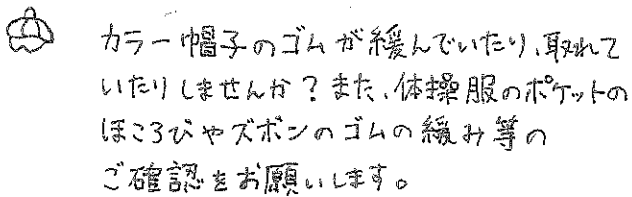 カラー帽子のゴムが緩んでいたり、取れて
いたりしませんか？また、体操服のポケットの
ほころびやズボンのゴムの緩み等の
ご確認をお願いします。